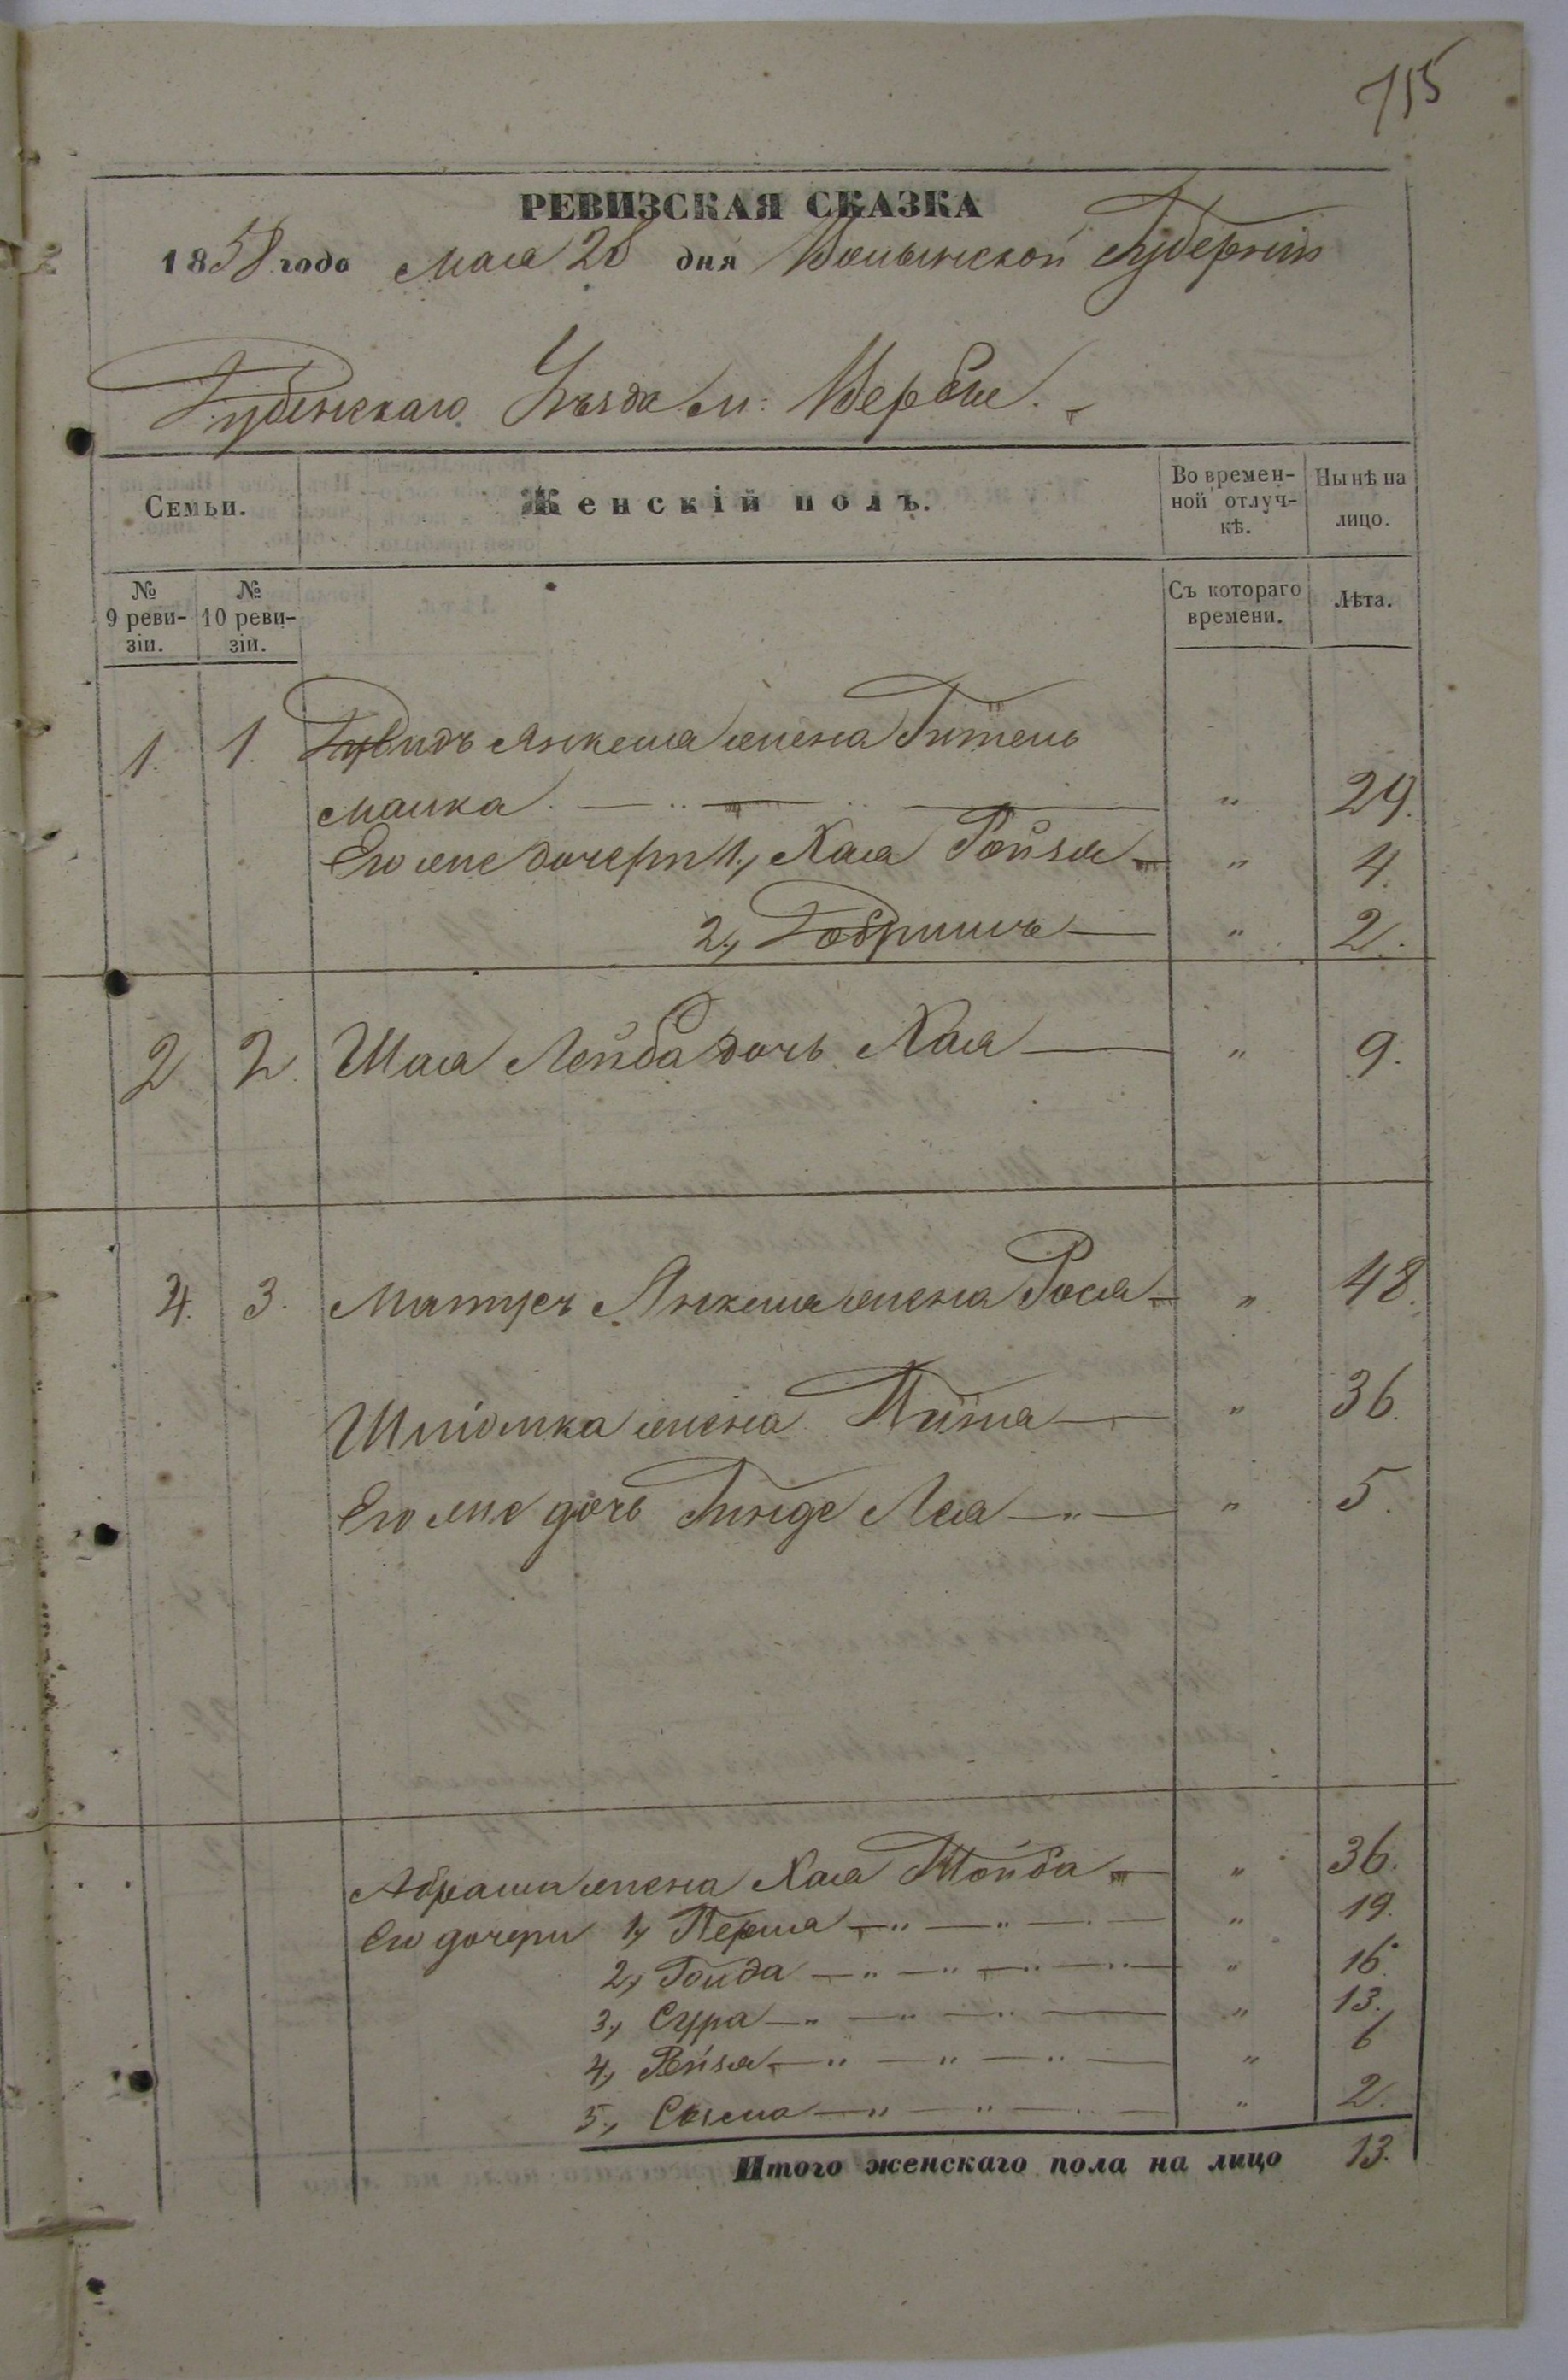 715
РЕВИЗСКАЯ СКАЗКА
1858 года Мая 28 дня Волынской Губерніи
Дубенскаго Уѣзда м: Вербы.
Семьи.
Женскій полъ.
Во времен-
ной отлуч-
кѣ.
Нынѣ на
лицо.
№
9 реви-
зіи.
№
10 реви-
зіи.
Съ котораго
времени.
Лѣта.
1. 1. Дувидъ Янкеля жена Гитель
Малка. — " — " — " 29.
Его же дочери 1, Хая Ройзя — " 4.
2, Добришъ — " 2.
2. 2. Шая Лейба дочь Хая — " 9.
4. 3. Матусъ Янкеля жена Рося — " 48.
Шліомка жена — " 36.
Его же дочь Гинде Лея — " — " 5.
Абрама жена Хая Тойба — " 36.
Его дочери 1, Перля — " — " — " 19.
2, Голда — " — " — " — " 16.
3, Сура — " — " — " — " 13.
4, Рейзя — " — " — " — " 6
5, — " — " — " — " 2.
Итого женскаго пола на лицо 13.